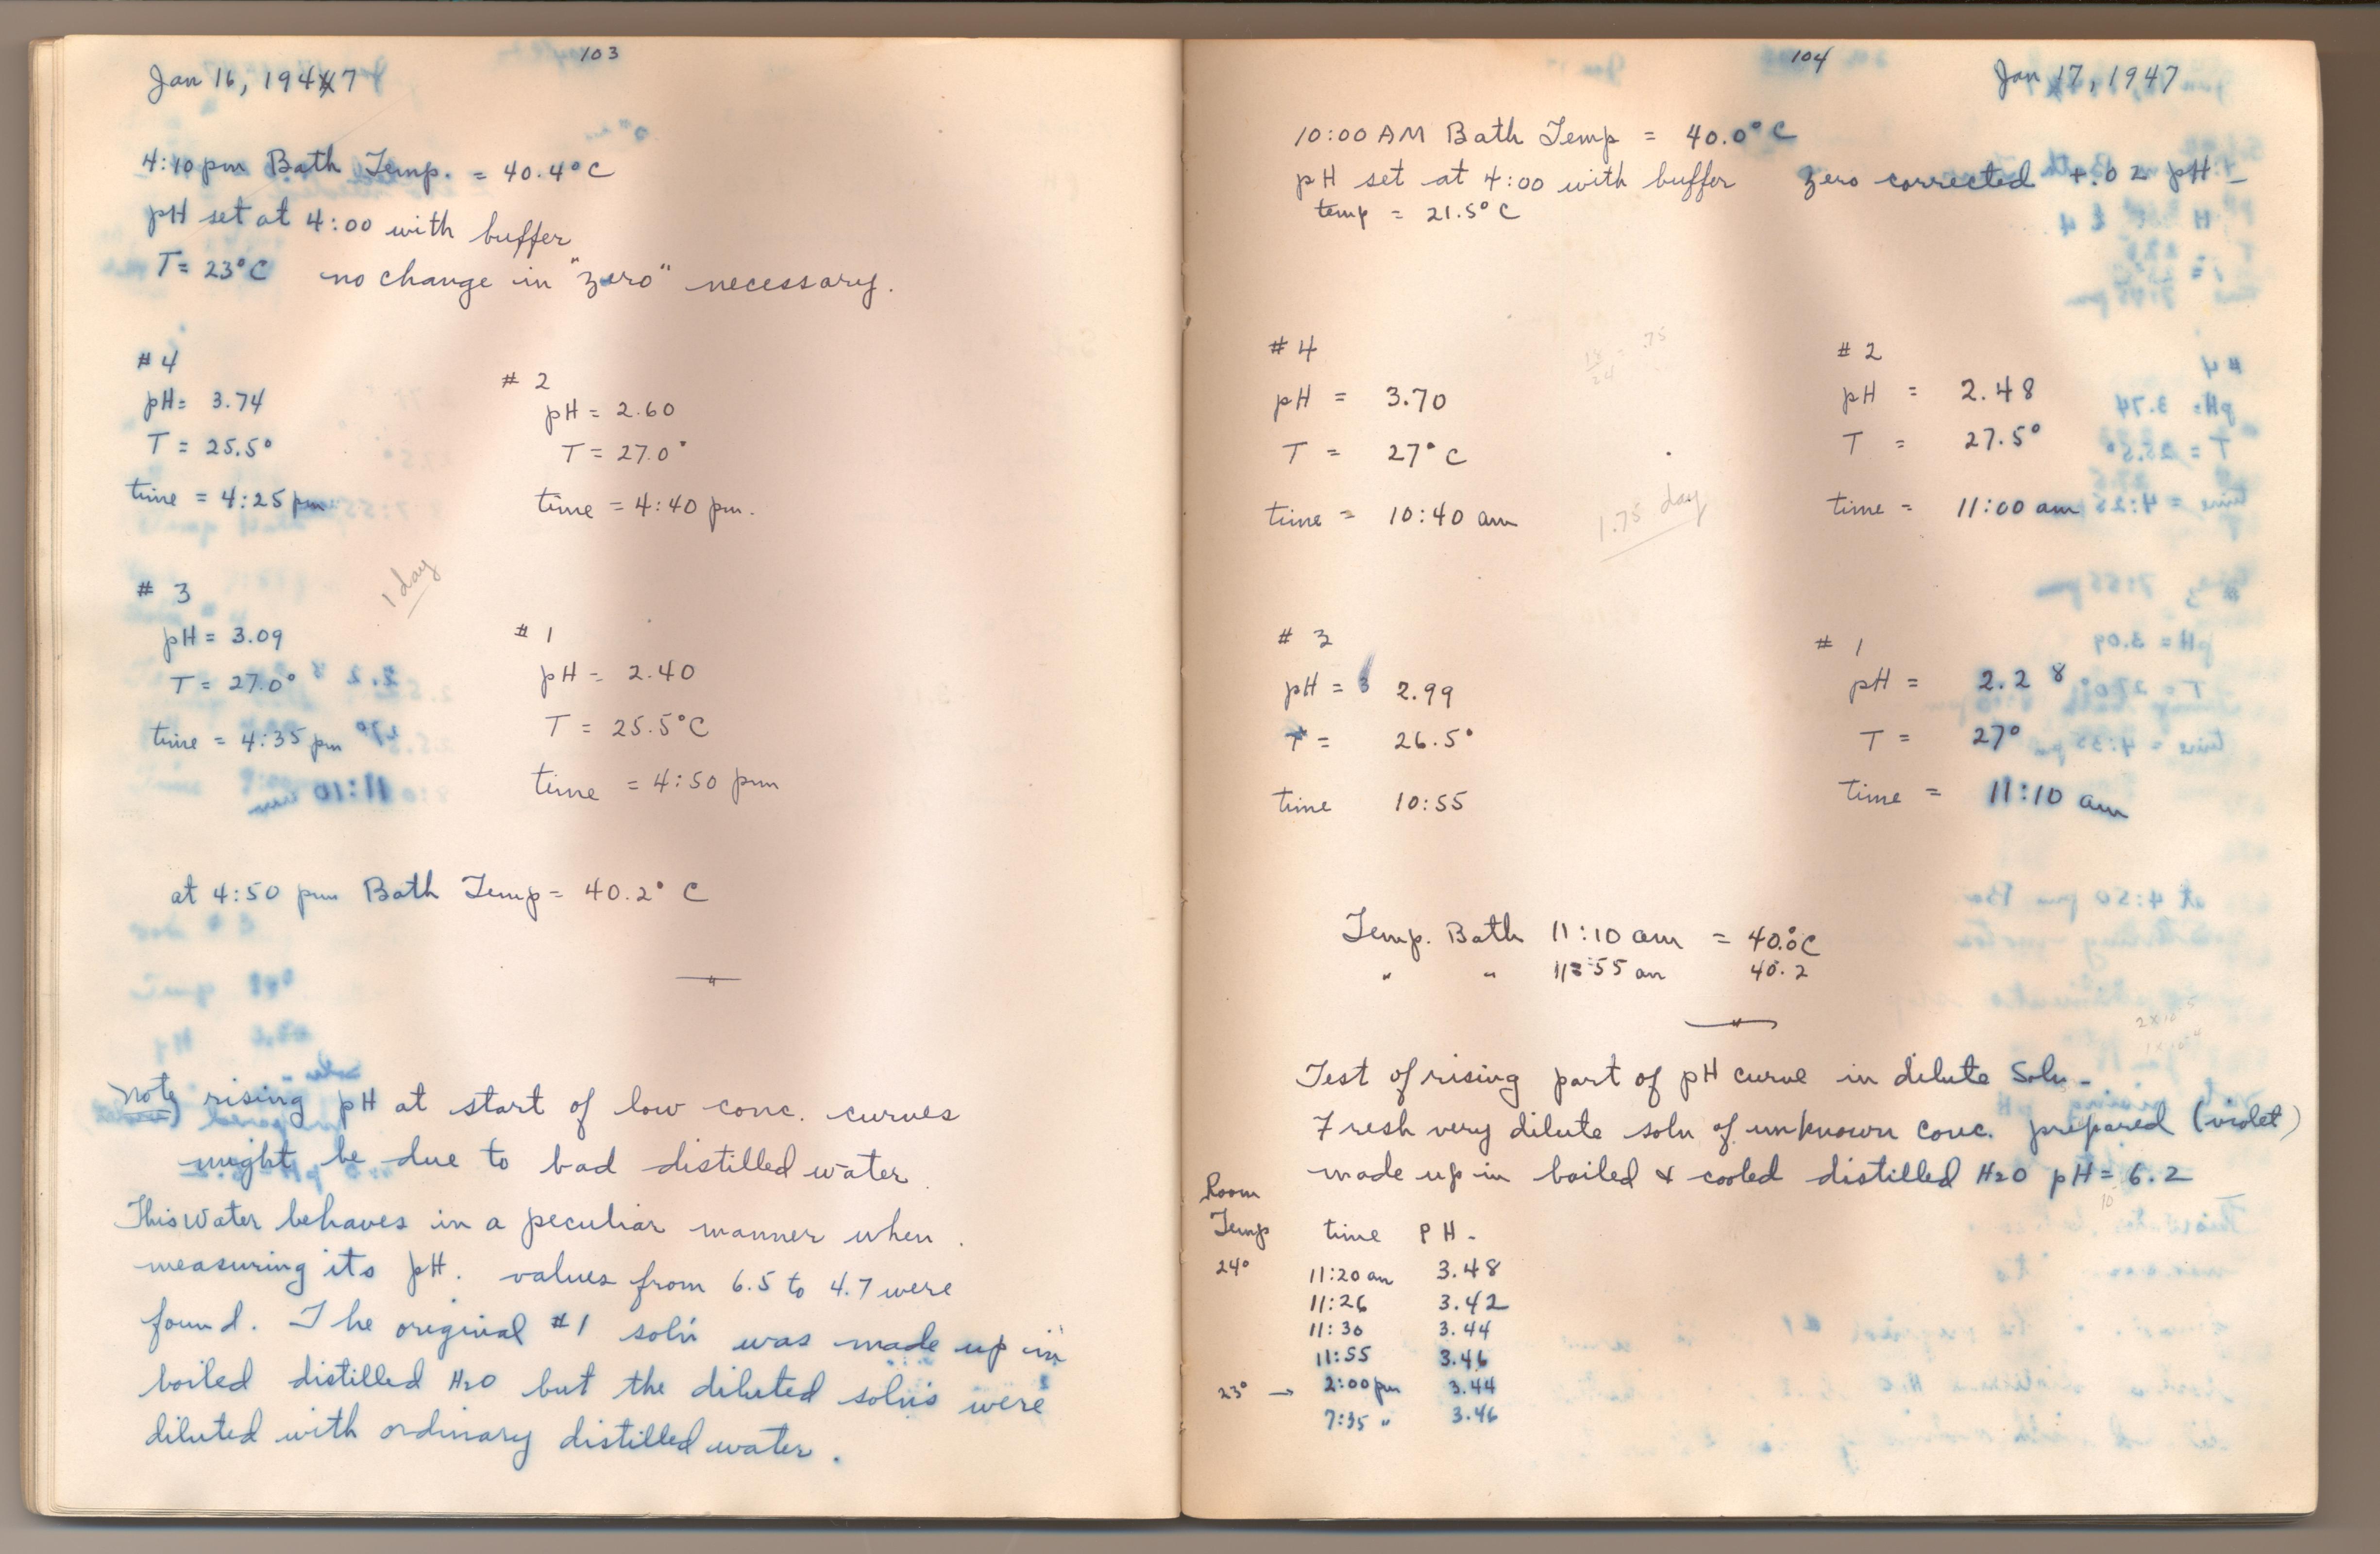 103
Jan 16, 1947
4:10 pm Bath Temp. = 40.4°C
pH set at 4:00 with buffer
T = 23°C no change in "zero" necessary.
# 4
pH = 3.74
T = 25.5°
time = 4:25 pm
# 2
pH = 2.60
T = 27.0°
time = 4:40 pm.
1 day
# 3
pH = 3.09
T = 27.0°
time = 4:35 pm
# 1
pH = 2.40
T = 25.5°C
time = 4:50 pm
at 4:50 pm Bath Temp = 40.2° C
Note rising pH at start of low conc. curves
might be due to bad distilled water.
This water behaves in a peculiar manner when
measuring its pH. values from 6.5 to 4.7 were
found. The original #1 soln was made up in
boiled distilled H2O but the diluted solns were
diluted with ordinary distilled water.
104
Jan 17, 1947
10:00 AM Bath Temp = 40.0°C
pH set at 4:00 with buffer zero corrected +.02 pH -
temp = 21.5°C
18/24 = .75
# 4
pH = 3.70
T = 27°C
time = 10:40 am
# 2
pH = 2.48
T = 27.5°
time = 11:00 am
1.75 day
# 3
pH = 2.99
T = 26.5°
time 10:55
# 1
pH = 2.28
T = 27°
time = 11:10 am
Temp. Bath 11:10 am = 40.0°C
" " 11:55 am 40.2
Test of rising part of pH curve in dilute Soln -
Fresh very dilute soln of unknown conc. prepared (violet)
made up in boiled & cooled distilled H2O pH = 6.2
Room
Temp time PH -
24° 11:20 am 3.48
11:26 3.42
11:30 3.44
11:55 3.46
23° → 2:00 pm 3.44
7:35 " 3.46